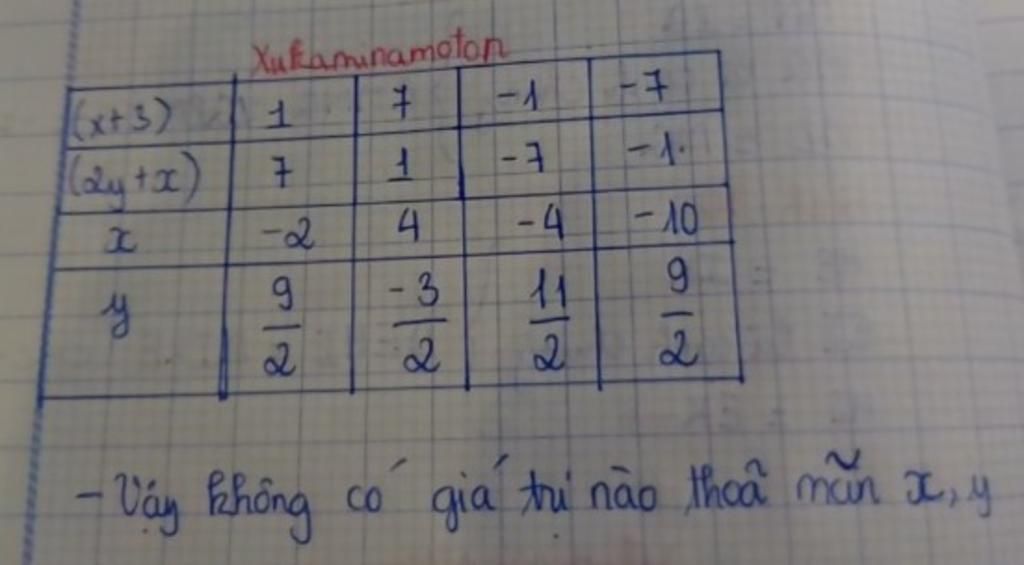 Xukaminamoton
(x+3) 1 7 -1 -7
(2y+x) 7 1 -7 -1.
x -2 4 -4 -10
y 9/2 -3/2 11/2 9/2
- Vậy không có giá trị nào thoả mãn x, y